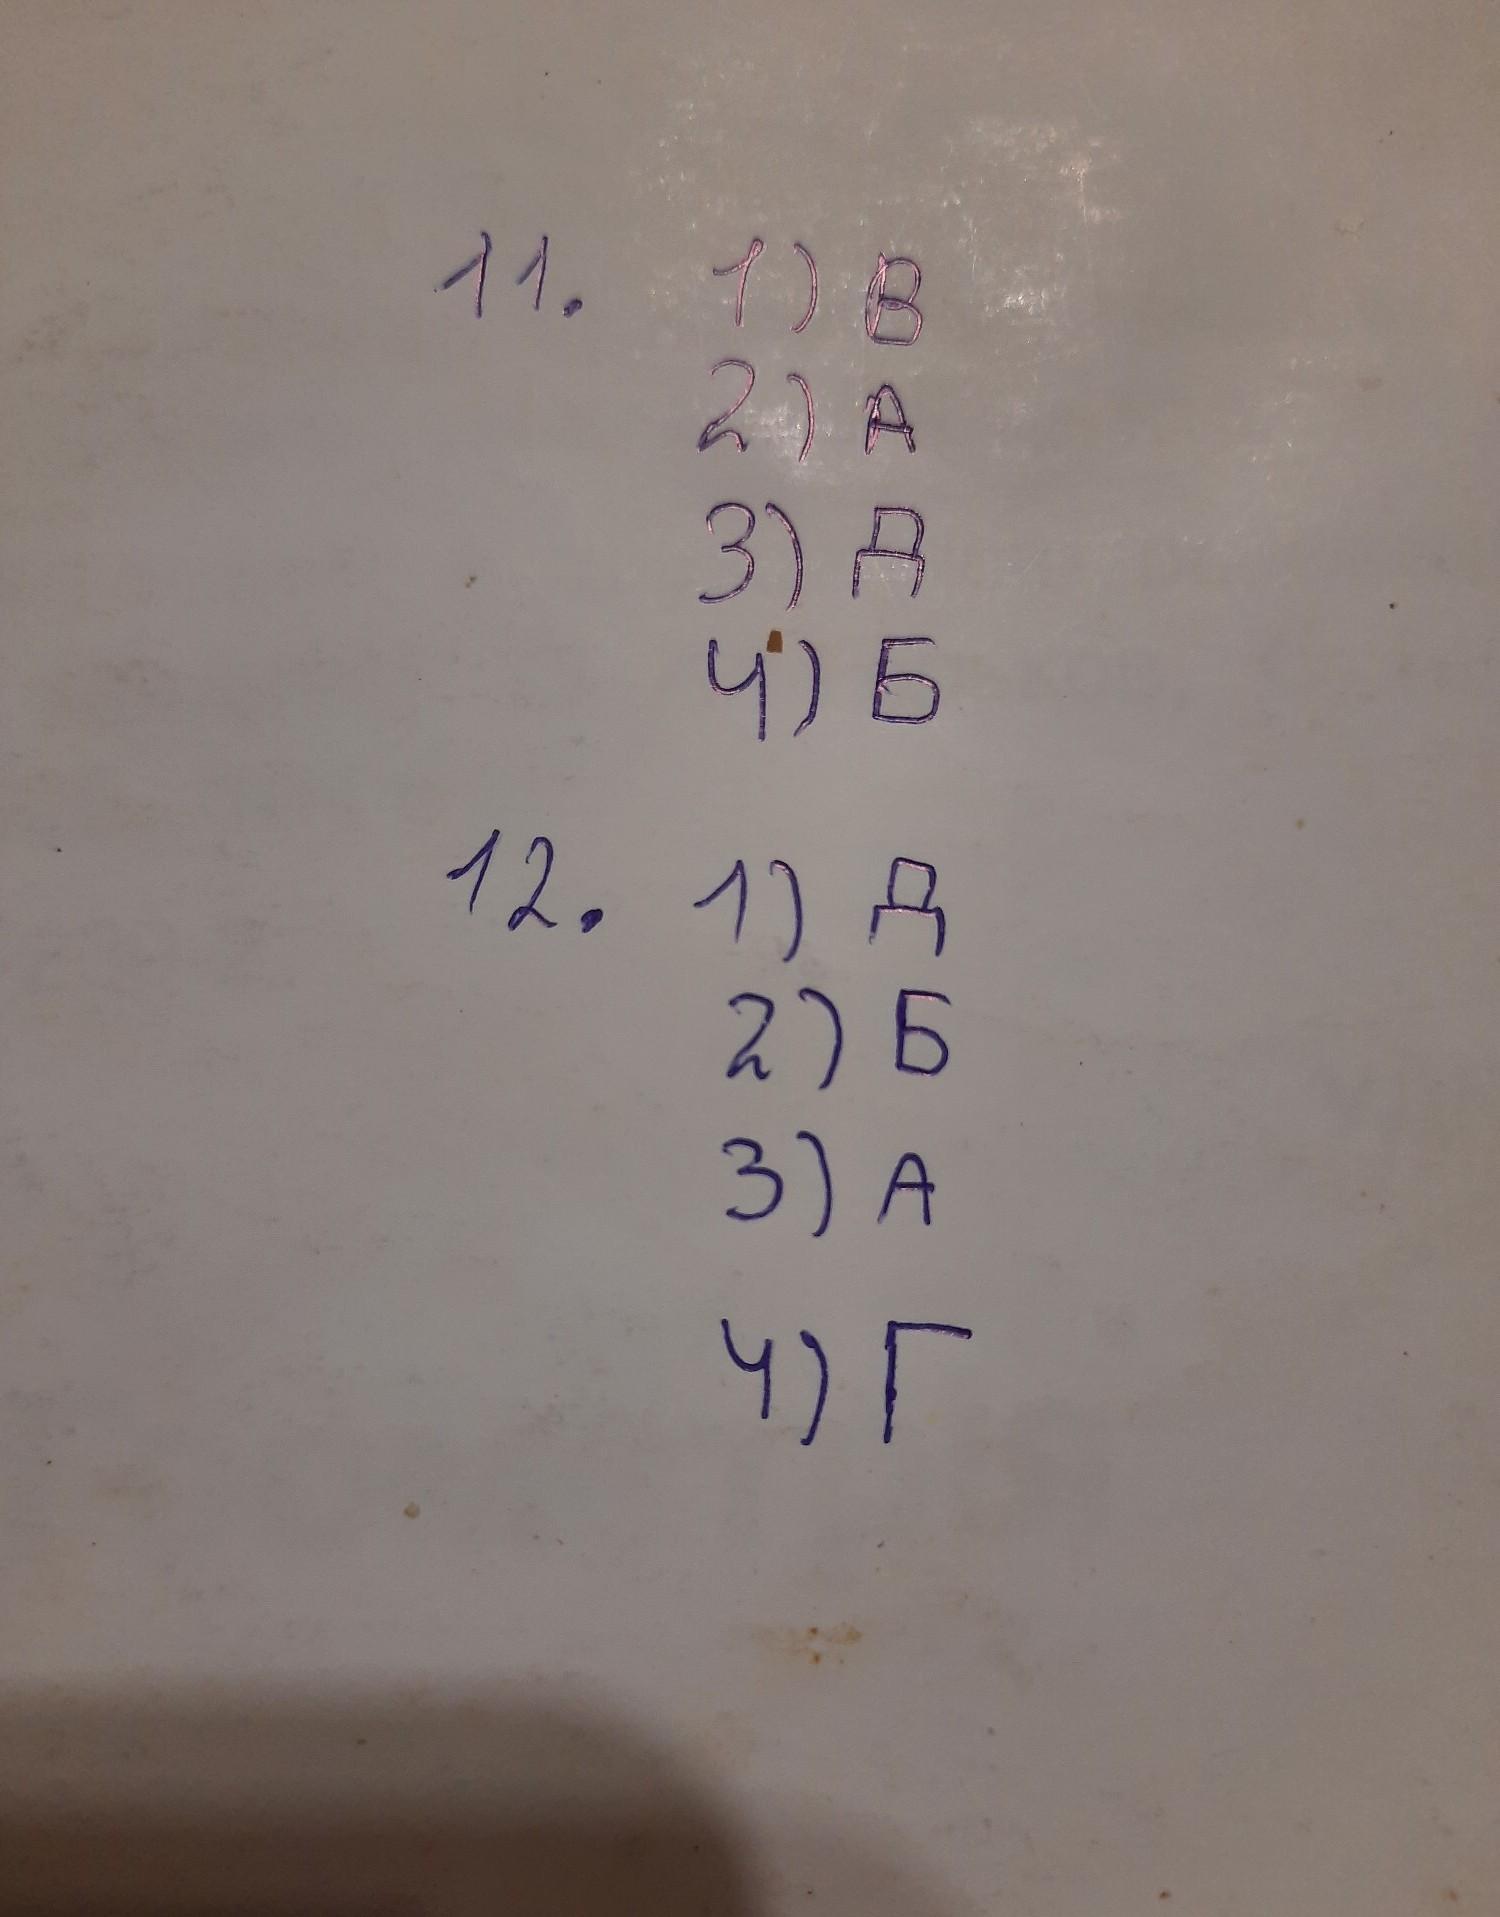 11. 1) В
2) А
3) Д
4) Б
12. 1) Д
2) Б
3) А
4) Г